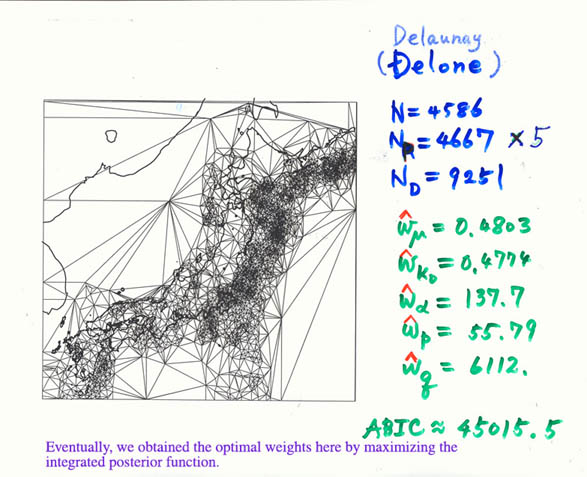 Delaunay
(Delone)
N = 4586
N_P = 4667 × 5
N_D = 9251
ŵ_μ = 0.4803
ŵ_K₀ = 0.4774
ŵ_α = 137.7
ŵ_p = 55.79
ŵ_q = 6112.
ABIC ≈ 45015.5
Eventually, we obtained the optimal weights here by maximizing the
integrated posterior function.